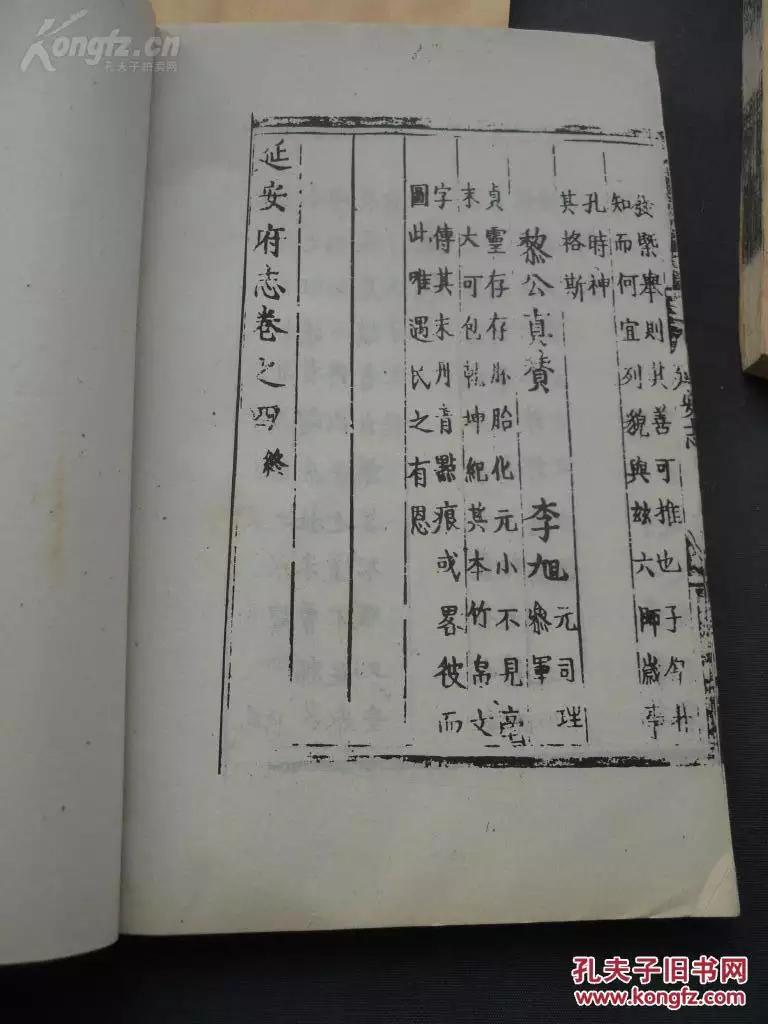 Kongfz.cn
孔夫子拍卖网
延安志
效槩舉則其善可推也子今
知而何宜列貌與玆六師歲亭
孔時神
其格斯
元司理
黎公真賛 李旭 㕘軍
貞靈存存脉胎化元小不見亳
末大可包乾坤紀其本竹帛文
字傳其末丹音㸃痕或畧彼而
圖此唯遇民之有恩
延安府志卷之四終
孔夫子旧书网
www.kongfz.com